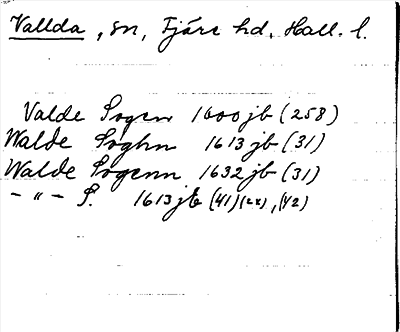 Vallda, sn, Fjäre hd, Hall. l.
Valde Sogen 1600 jb (258)
Walde Soghn 1613 jb (31)
Walde Sogenn 1632 jb (31)
– " – S. 1613 jb (41) (22), (42)